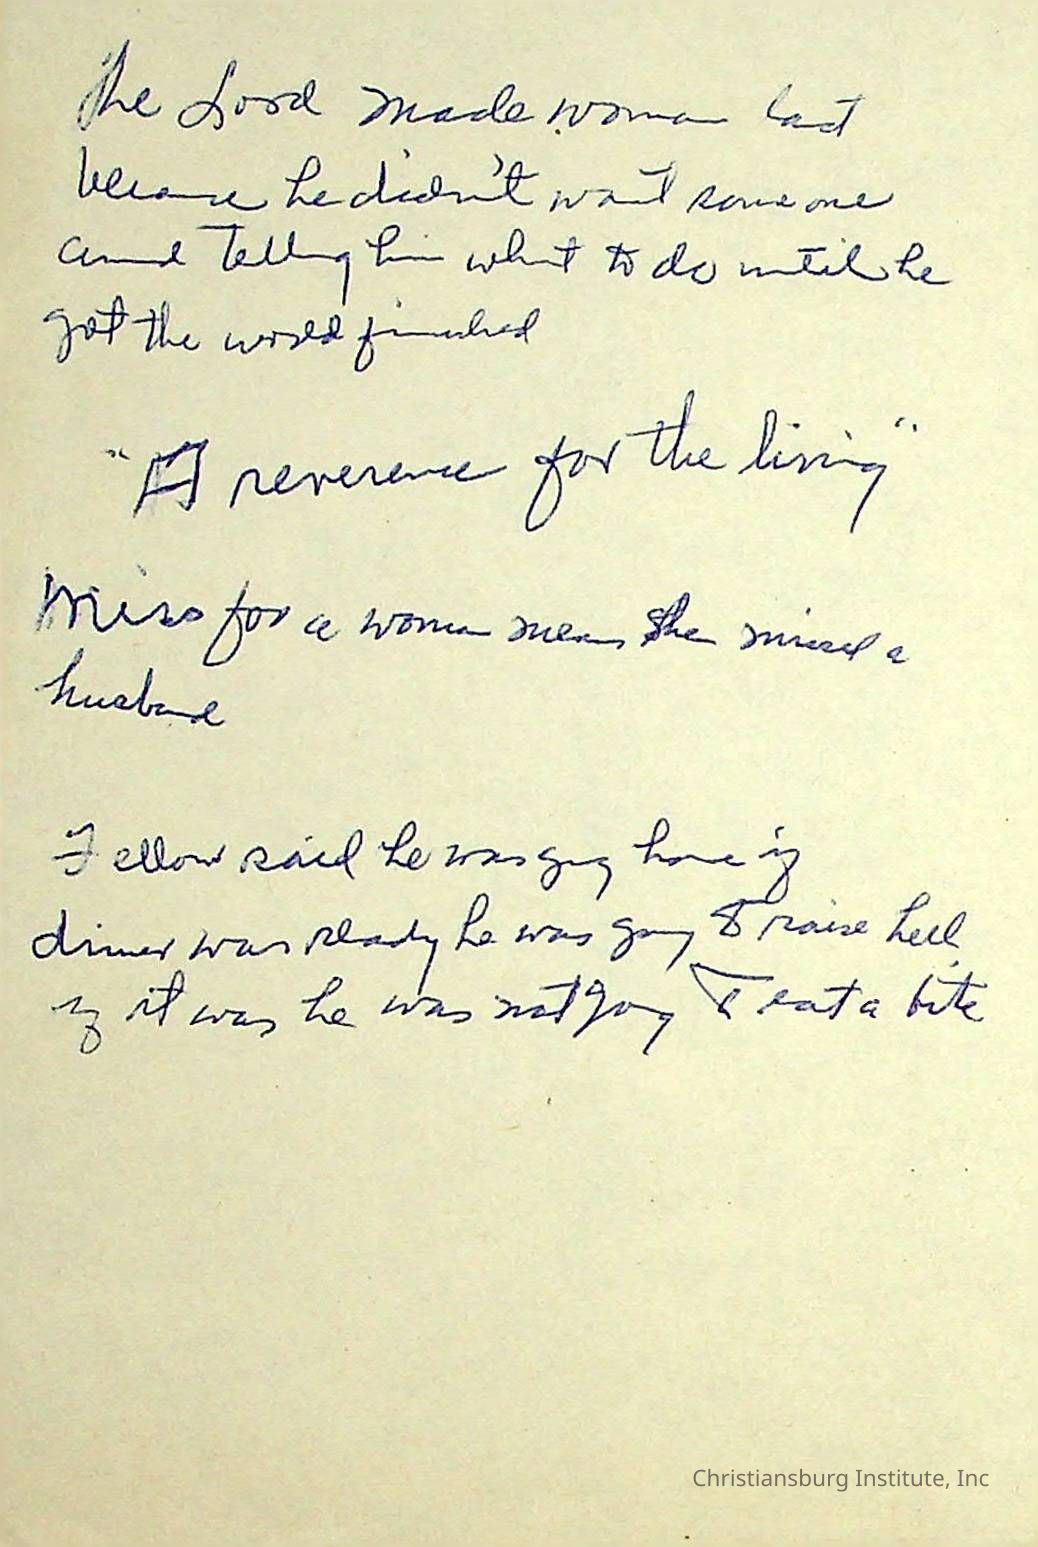 The Lord made woman last
because he didn't want someone
around Telling him what to do until he
got the world finished
"A reverence for the living"
Miss for a woman means she missed a
husband
Fellow said he was going home if
dinner was ready he was going to raise hell
if it was he was not going To eat a bite
Christiansburg Institute, Inc